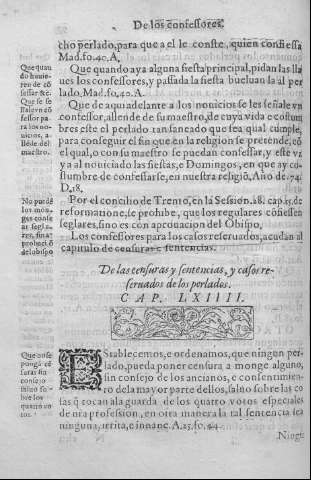 De los confessores.
cho perlado, para que a el le conste, quien confiessa
Mad. fo. 40. A.
Que quando aya alguna fiesta principal, pidan las lla
ues los confessores, y passada la fiesta bueluan la al per
lado. Mad. fo. 40. A.
Que de aqui adelante a los nouicios se les señale vn
confessor, allende de su maestro, de cuya vida e costum
bres este el perlado tan saneado que sea qual cumple,
para conseguir el fin que en la religion se pretende, cõ
el qual, o con su maestro se puedan confessar, y este va
ya al nouiciado las fiestas, e Domingos, en que ay co
stumbre de confessarse, en nuestra religiõ, Año de .74.
D. 18.
Por el concilio de Trento, en la Session. 18. cap. 15. de
reformatione, se prohibe, que los regulares cõfiessen
seglares, sino es con aprouacion del Obispo.
Los confessores para los casos reseruados, acudan al
capitulo de censuras e sentencias.
De las censuras y sentencias, y casos re-
seruados de los perlados.
CAP. LXIIII.
EStablecemos, e ordenamos, que ningun per
lado, pueda poner censura a monge alguno,
sin consejo de los ancianos, e consentimien-
to de la mayor parte dellos, saluo sobre las co
sas q̃ tocan a la guarda de los quatro votos especiales
de nra profession, en otra manera la tal sentencia sea
ninguna, irrita, e innane. A. 25. fo. 64.
Ningũ
Que quan
do
ren de cõ
fessar &c.
Que se se
ñale vn cõ
fessor pa-
ra los no-
uicios, a-
llẽde del
maestro.
No puedẽ
los mon-
ges confe
ssar segla-
res, sin a-
prouaciõ
del obispo
Que no se
pongã cẽ
suras sin
consejo
sino so-
bre los
quatro vo
tos.